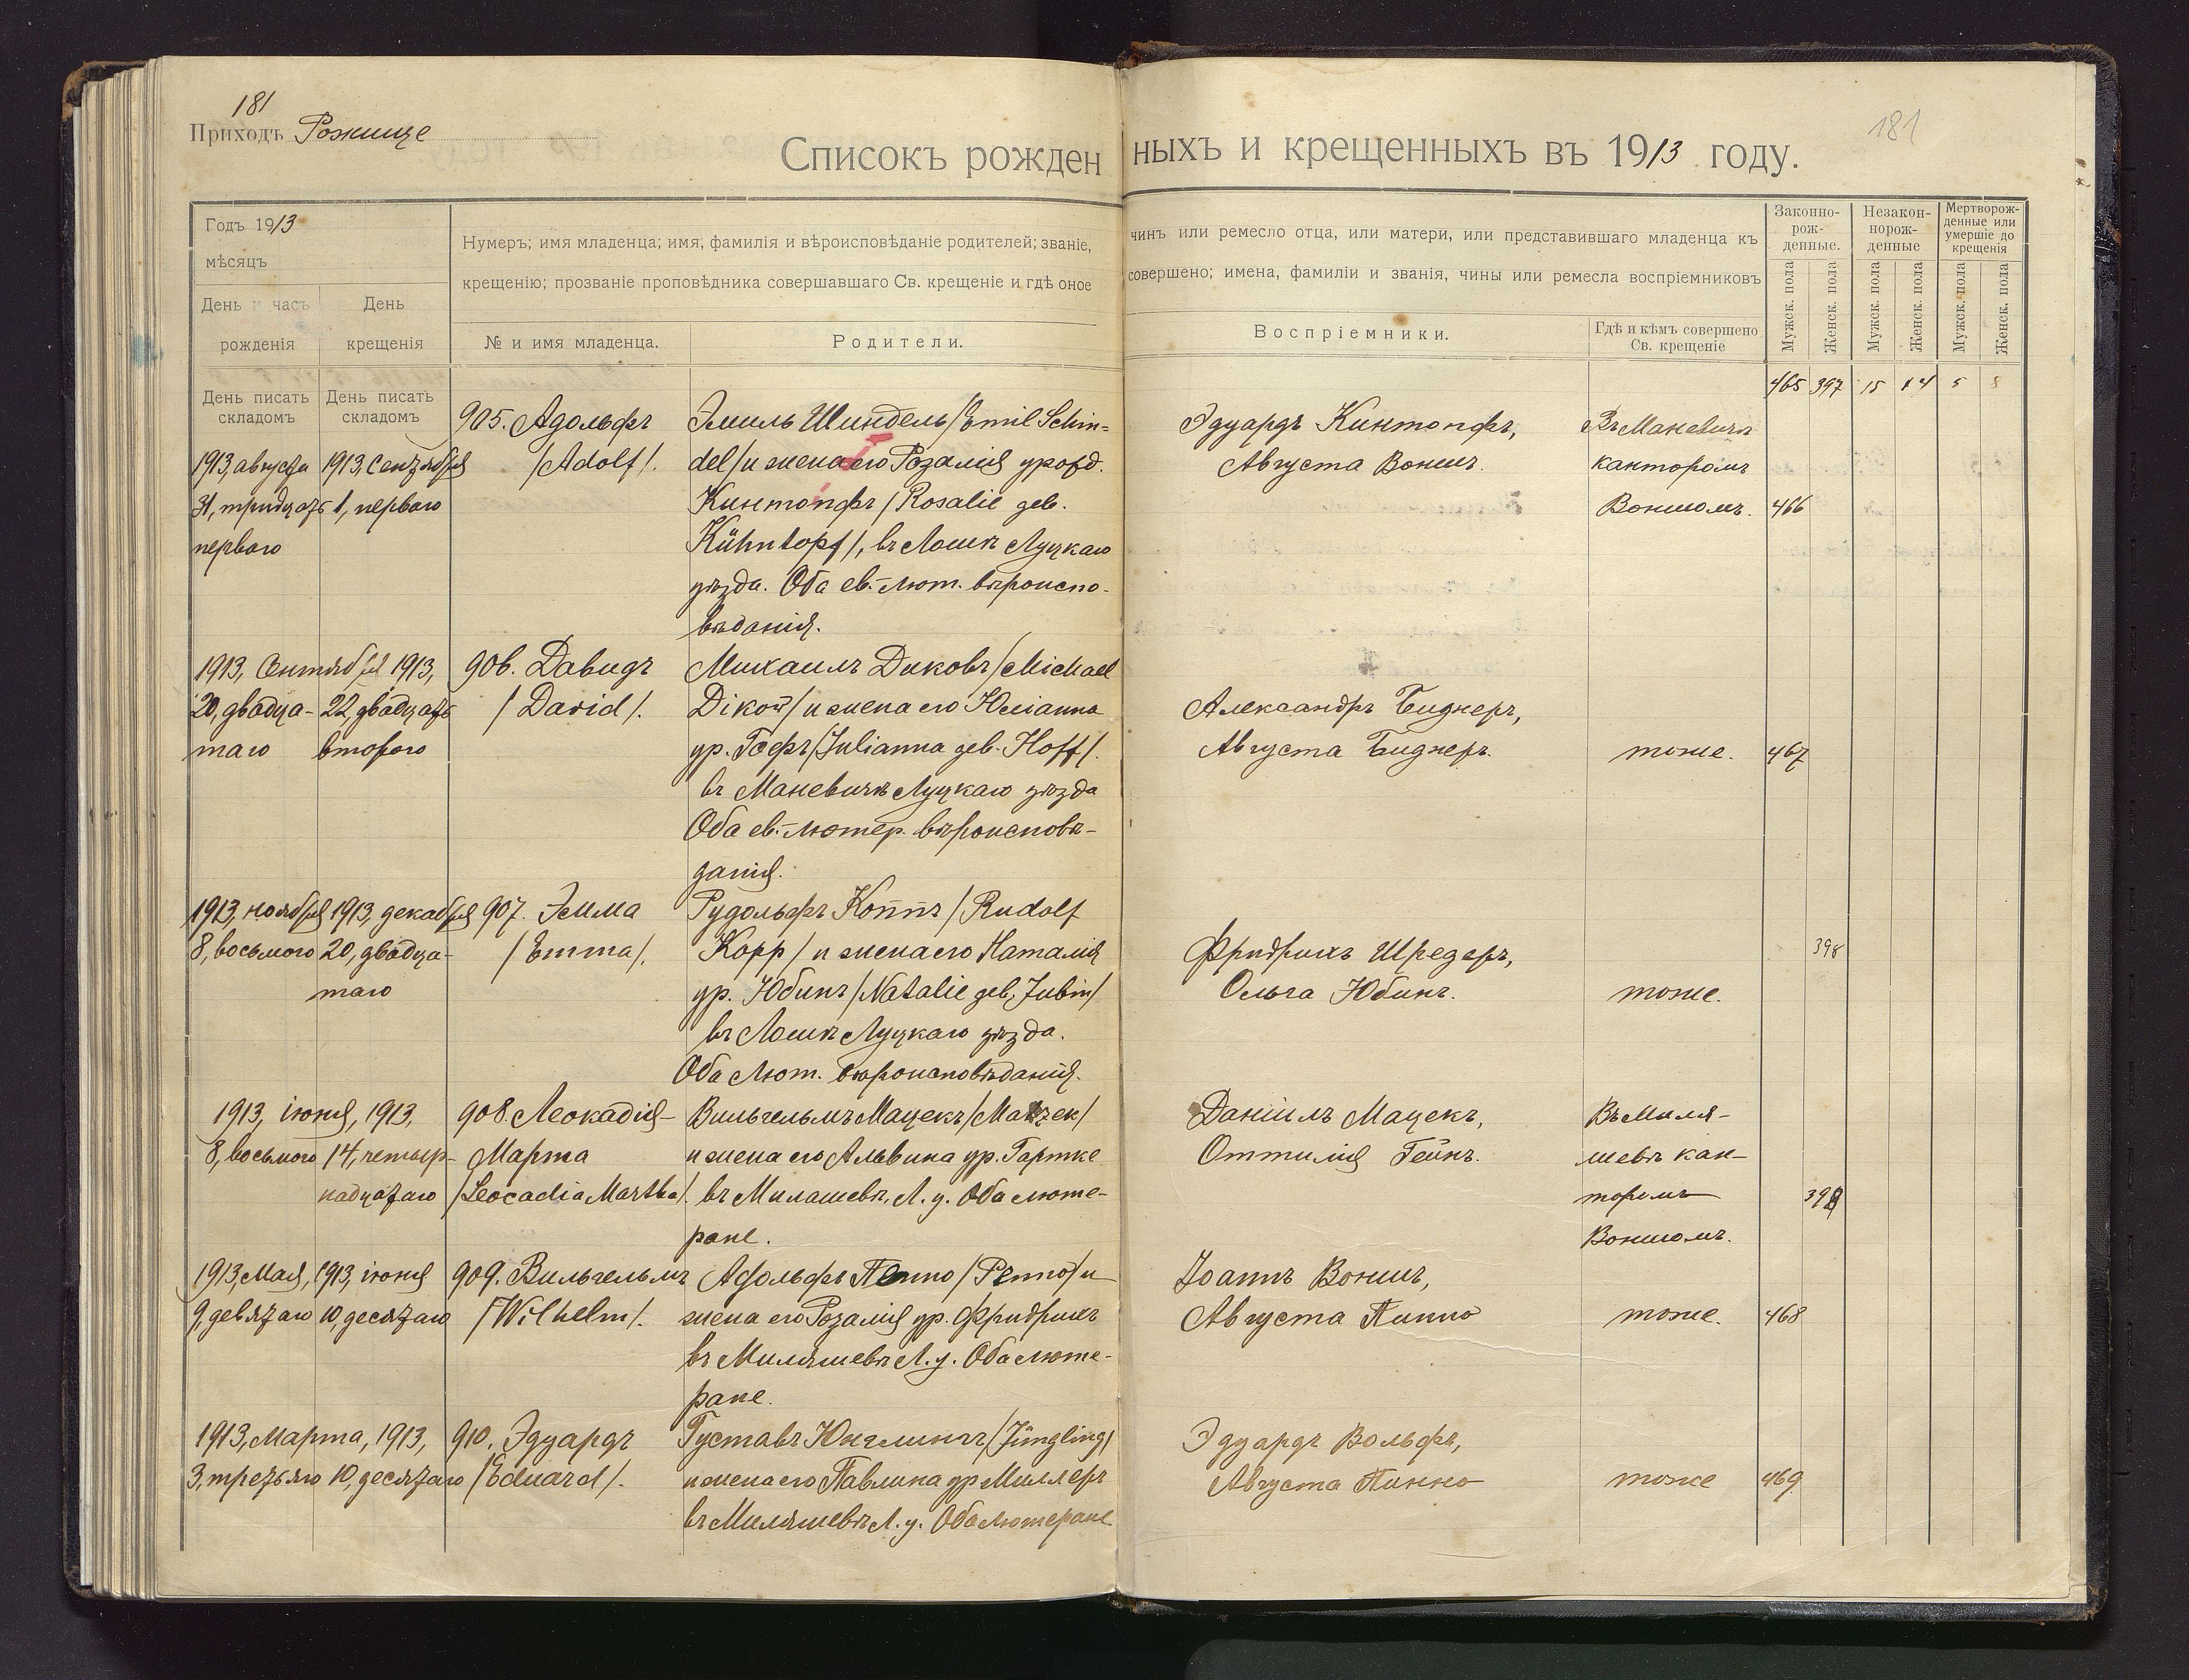 181
Приходъ Рожище
181
Списокъ рожденныхъ и крещенныхъ въ 1913 году.
Годъ 1913
мѣсяцъ
День и часъ рожденія
День крещенія
Нумеръ; имя младенца; имя, фамилія и вѣроисповѣданіе родителей; званіе, чинъ или ремесло отца, или матери, или представившаго младенца къ
крещенію; прозваніе проповѣдника совершавшаго Св. крещеніе и гдѣ оное совершено; имена, фамиліи и званія, чины или ремесла воспріемниковъ
№ и имя младенца.
Родители.
Воспріемники.
Гдѣ и кѣмъ совершено
Св. крещеніе
Законно-
рож-
денные.
Незакон-
норож-
денные
Мертворож-
денные или
умершіе до
крещенія
Мужск. пола
Женск. пола
Мужск. пола
Женск. пола
Мужск. пола
Женск. пола
День писать
складомъ
День писать
складомъ
465 397 15 14 5 8
1913, августа
31, тридцать
перваго
1913, сентября
1, перваго
905. Адольфъ
/Adolf/.
Эмиль Шиндель /Emil Schin=
del/ и жена его Розалія урожд.
Кинтопфъ /Rosalie geb.
Kühntopf/, въ Лошкѣ Луцкаго
уѣзда. Оба ев.-лют. вѣроиспо-
вѣданія.
Эдуардъ Кинтопфъ,
Августа Воншъ.
Въ Маневичѣ
канторомъ
Воншомъ.
466
1913, сентября
20, двадца-
таго
1913,
22, двадцать
второго
906. Давидъ
/David/.
Михаилъ Диковъ /Michael
Dikow/ и жена его Юліанна
ур. Гофъ /Julianna geb. Hoff/.
въ Маневичѣ Луцкаго уѣзда
Оба ев.-лютер. вѣроисповѣ-
данія.
Александръ Биднеръ,
Августа Биднеръ.
тоже.
467
1913, ноября
8, восьмого
1913, декабря
20, двадца-
таго
907. Эмма
/Emma/.
Рудольфъ Коппъ /Rudolf
Kopp/ и жена его Наталія
ур. Юбинъ /Natalie geb. Jubin/
въ Лошкѣ Луцкаго уѣзда.
Оба лют. вѣроисповѣданія.
Фридрихъ Шредеръ,
Ольга Юбинъ.
тоже.
398
1913, іюня,
8, восьмого
1913,
14, четыр-
надцатаго
908. Леокадія-
Марта
/Leocadia Martha/.
Вильгельмъ Мацекъ /Matzek/
и жена его Альвина ур. Гартке
въ Милашевѣ, Л. у. Оба люте-
ране.
Даніилъ Мацекъ,
Оттилія Гейнъ.
Въ Миля-
шевѣ кан-
торомъ
Воншомъ.
399
1913, Мая,
9, девятаго
1913, іюня
10, десятаго
909. Вильгельмъ
/Wilhelm/.
Адольфъ Пенно /Penno/ и
жена его Розалія ур. Фридрихъ
въ Миляшевѣ Л. у. Оба люте-
ране.
Іоаннъ Воншъ,
Августа Пинно
тоже.
468
1913, Марта,
3, третьяго
1913,
10, десятаго
910. Эдуардъ
/Eduard/.
Густавъ Юнглингъ /Jüngling/
и жена его Павлина ур Миллеръ
въ Миляшевѣ Л. у. Оба лютеране.
Эдуардъ Вольфъ,
Августа Пинно
тоже
469